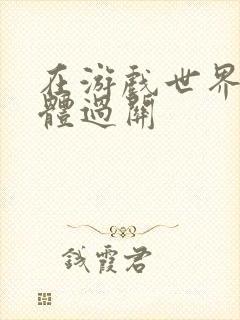 在游戏世界
體過關
鈛霞君